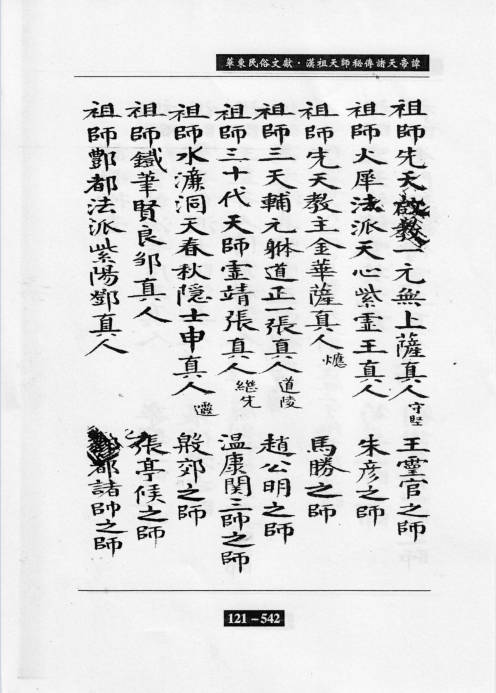 華東民俗文獻·漢祖天師秘傳諸天帝諱
祖師先天啟教一元無上薩真人守堅 王靈官之師
祖師火犀法派天心紫霊王真人 朱彥之師
祖師先天教主金華薩真人 馬勝之師
祖師三天輔元躰道正一張真人道陵 趙公明之師
祖師三十代天師霊靖張真人継先 温康関三帥之師
祖師水濂洞天春秋隱士申真人 殷郊之師
祖師鐵筆賢良邜真人 張亭候之師
祖師酆都法派紫陽鄧真人 都諸帥之師
121-542